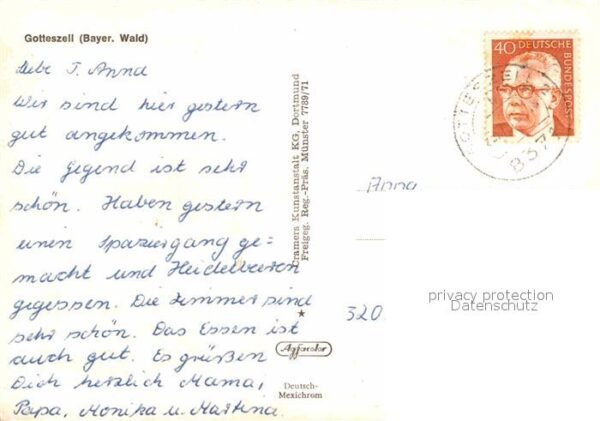 Gotteszell (Bayer. Wald)
Liebe T. Anna
Wir sind hier gestern
gut angekommen.
Die Gegend ist sehr
schön. Haben gestern
einen Spaziergang ge-
macht und Heidelbeeren
gegessen. Die Zimmer sind
sehr schön. Das Essen ist
auch gut. Es grüßen
Dich herzlich Mama,
Papa, Monika u. Martina.
Cramers Kunstanstalt KG, Dortmund
Freigeg. Reg.-Präs. Münster 7789/71
Agfacolor
Deutsch-
Mexichrom
40 DEUTSCHE
BUNDESPOST
837
Anna
320
privacy protection
Datenschutz